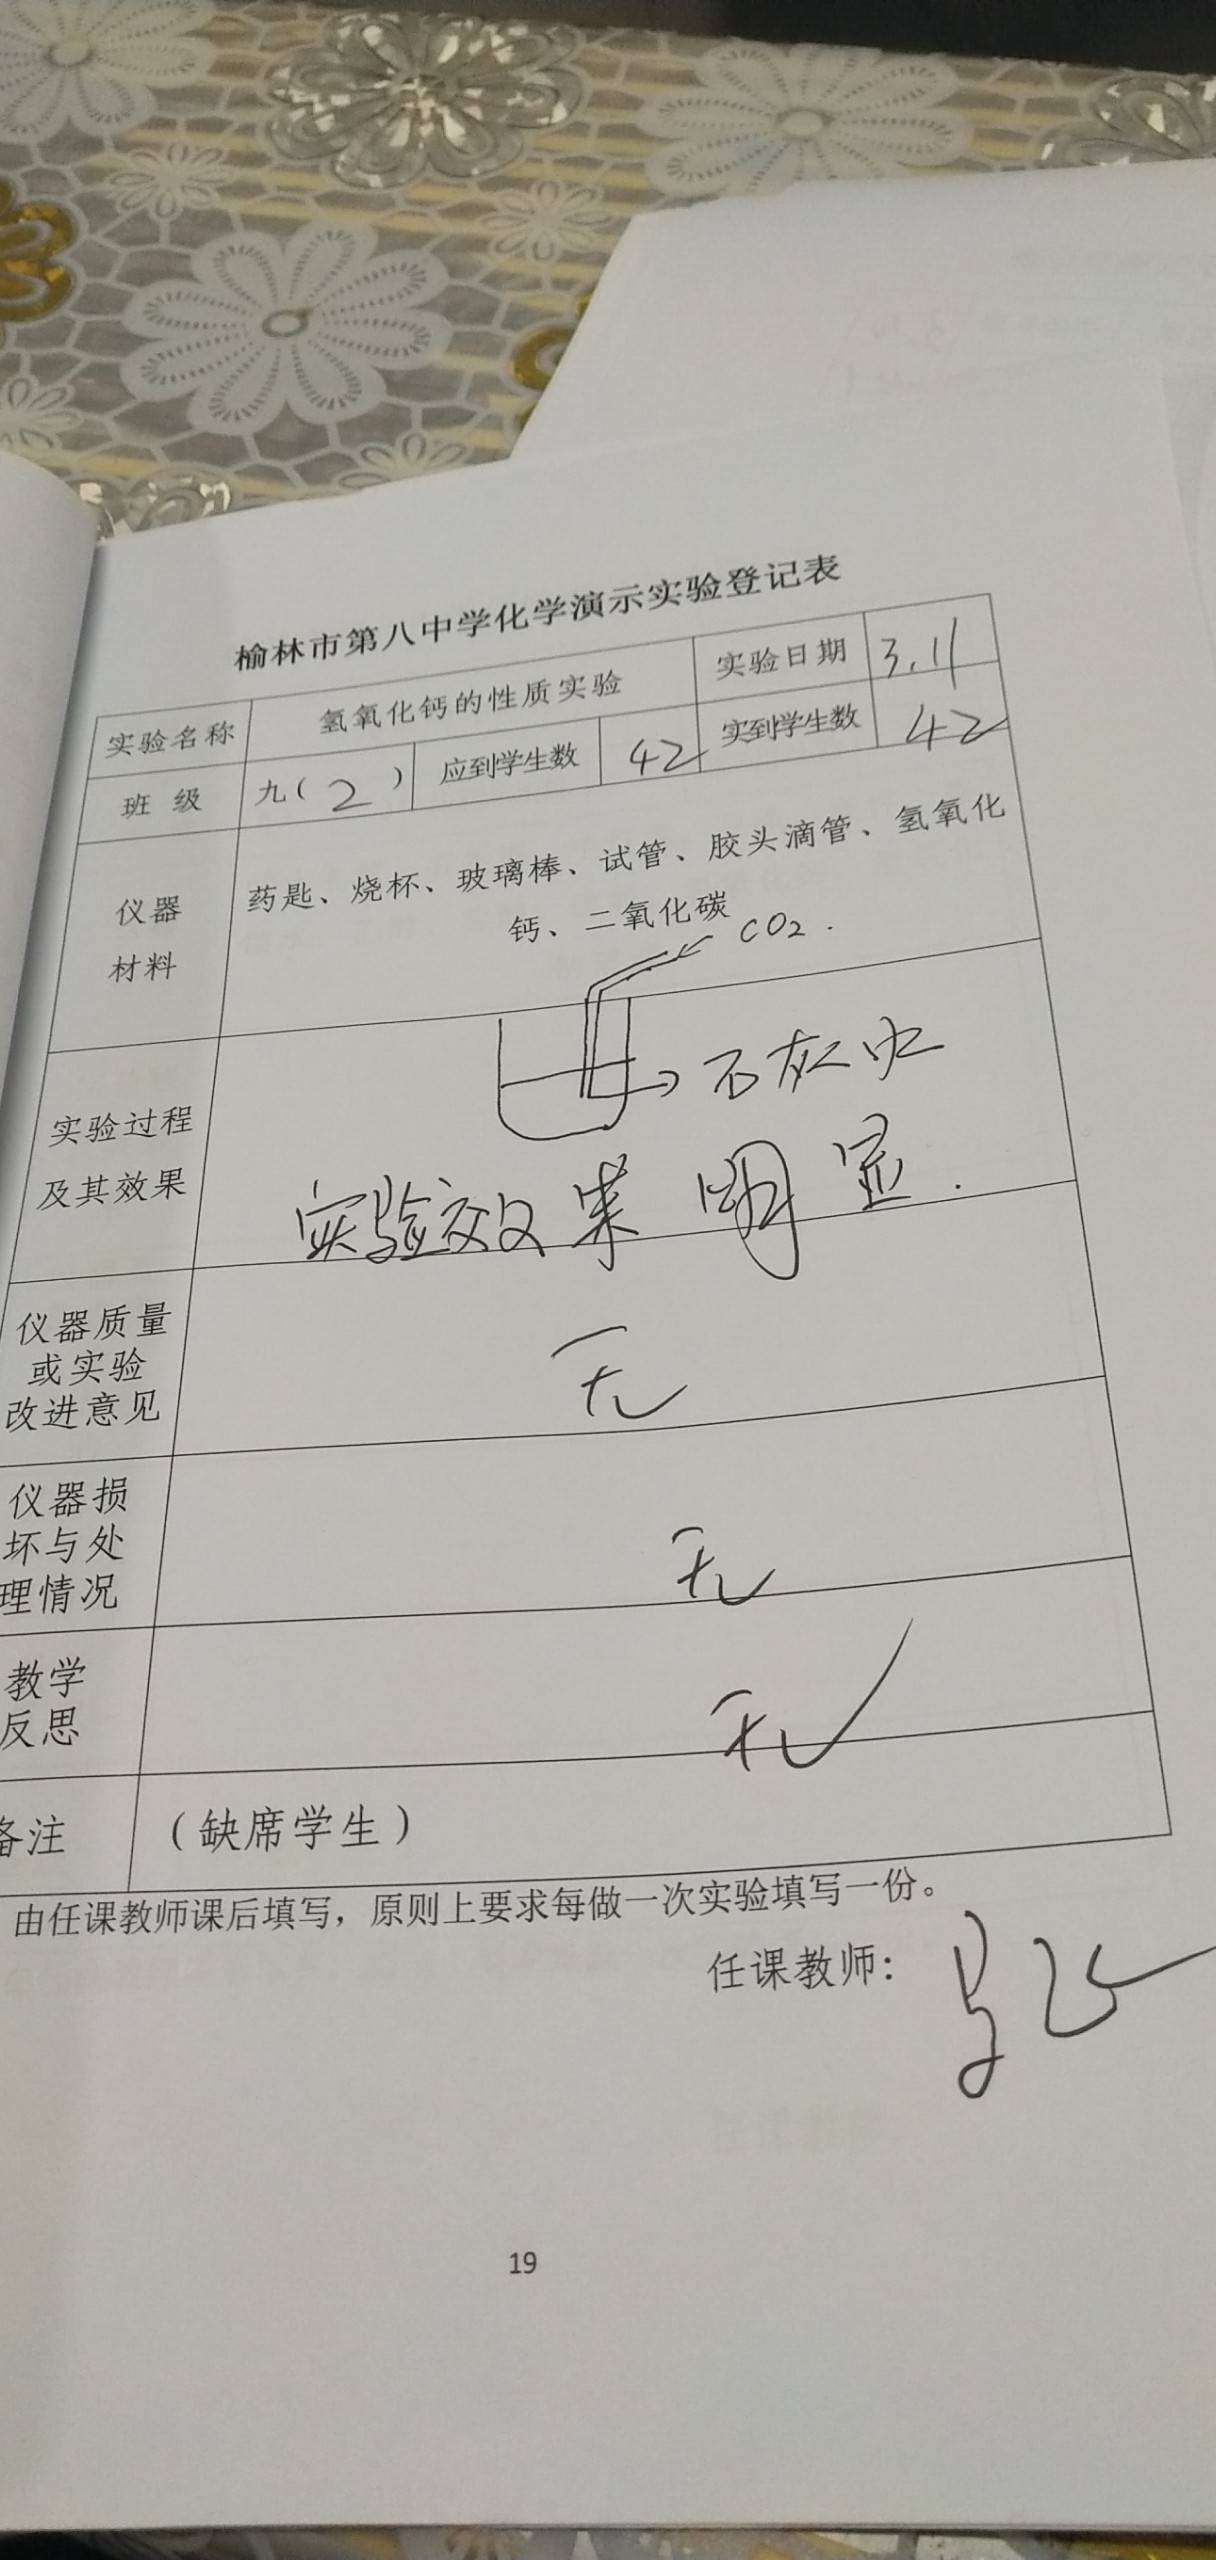 榆林市第八中学化学演示实验登记表
实验名称 氢氧化钙的性质实验 实验日期 3.11
班 级 九(2) 应到学生数 42 实到学生数 42
仪器
材料
药匙、烧杯、玻璃棒、试管、胶头滴管、氢氧化
钙、二氧化碳
CO2.
实验过程
及其效果
石灰水
实验效果明显.
仪器质量
或实验
改进意见
无
仪器损
坏与处
理情况
无
教学
反思
无
备注 (缺席学生)
由任课教师课后填写，原则上要求每做一次实验填写一份。
任课教师:
19